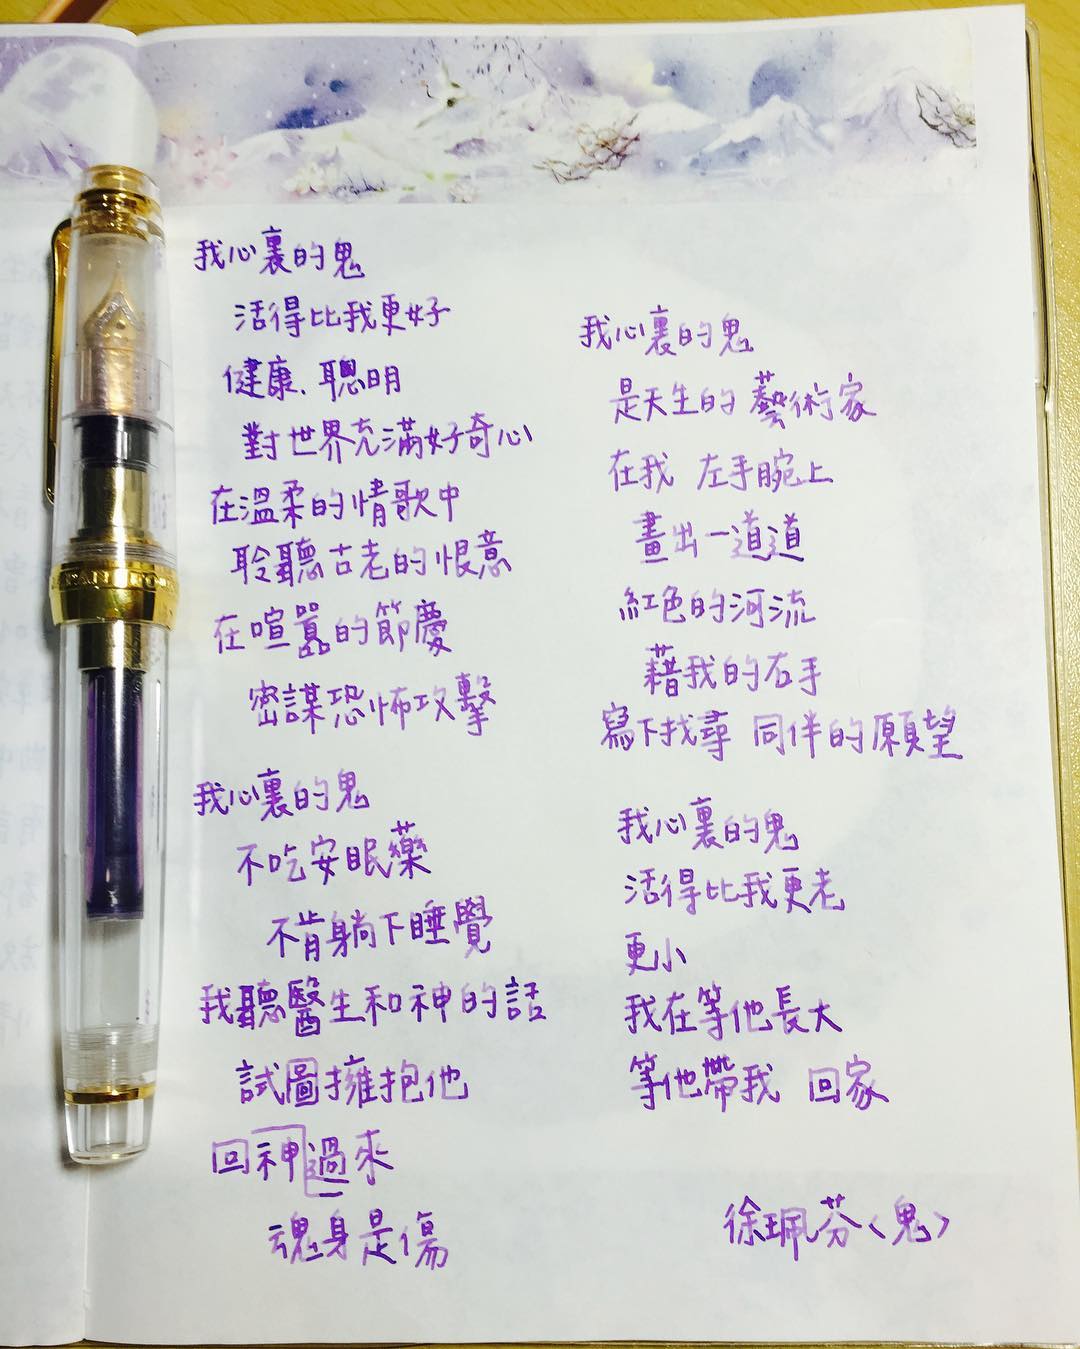 我心裏的鬼
活得比我更好
健康、聰明
對世界充滿好奇心
在溫柔的情歌中
聆聽古老的恨意
在喧囂的節慶
密謀恐怖攻擊
我心裏的鬼
不吃安眠藥
不肯躺下睡覺
我聽醫生和神的話
試圖擁抱他
回神過來
魂身是傷
我心裏的鬼
是天生的藝術家
在我 左手腕上
畫出一道道
紅色的河流
藉我的右手
寫下找尋 同伴的願望
我心裏的鬼
活得比我更老
更小
我在等他長大
等他帶我 回家
徐珮芬〈鬼〉